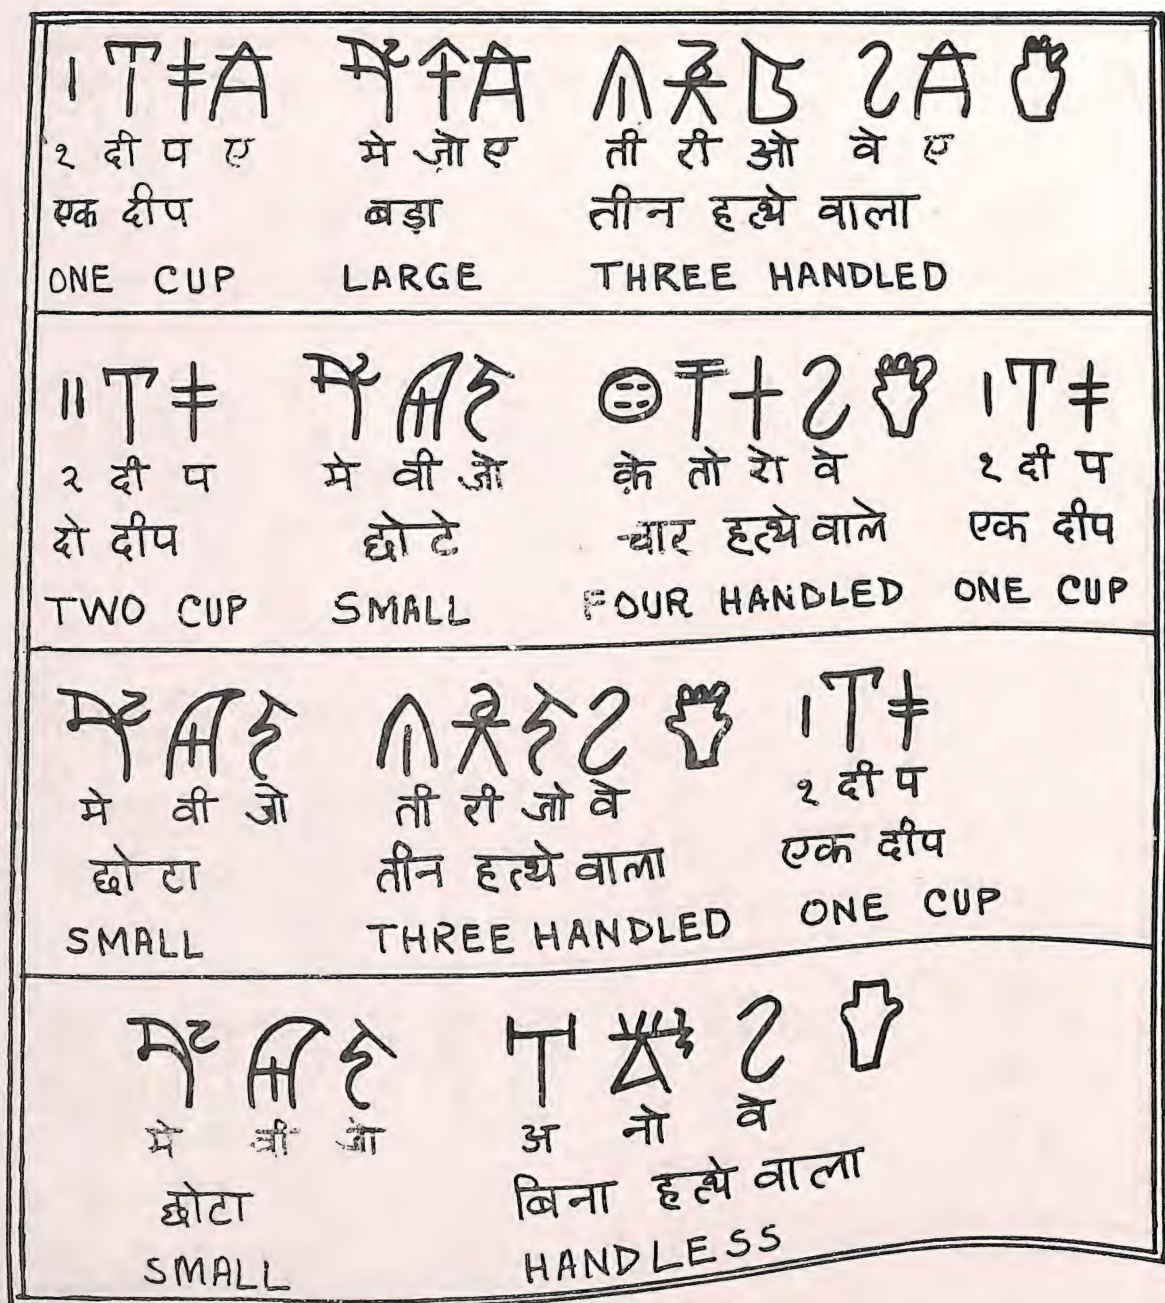 I 𐀇𐀞𐀁 𐀕𐀿𐀁 𐀴𐀪𐀃 𐀸𐀁
१ दी प ए मे ज़ो ए ती री ओ वे ए
एक दीप बड़ा तीन हत्थे वाला
ONE CUP LARGE THREE HANDLED
II 𐀇𐀞 𐀕𐀹𐀍 𐀤𐀵𐀫𐀸 I 𐀇𐀞
२ दी प मे वी जो क़े तो रो वे १ दी प
दो दीप छोटे चार हत्थे वाले एक दीप
TWO CUP SMALL FOUR HANDLED ONE CUP
𐀕𐀹𐀍 𐀴𐀪𐀍𐀸 I 𐀇𐀞
मे वी जो ती री जो वे १ दी प
छोटा तीन हत्थे वाला एक दीप
SMALL THREE HANDLED ONE CUP
𐀕𐀹𐀍 𐀀𐀜𐀸
मे वी जो अ नो वे
छोटा बिना हत्थे वाला
SMALL HANDLESS